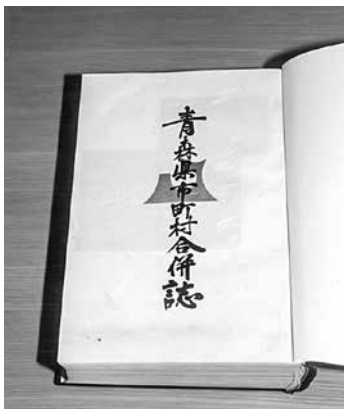 青森県市町村合併誌